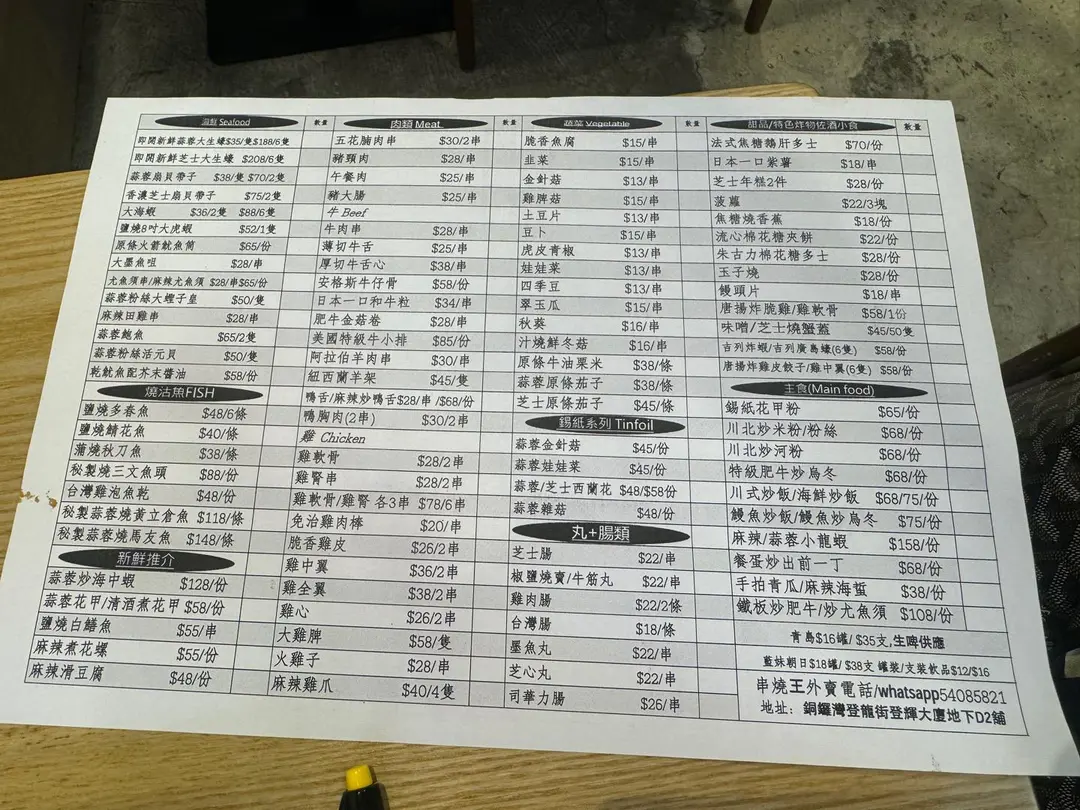 海鮮 Seafood 數量
即開新鮮蒜蓉大生蠔$35/隻$188/6隻
即開新鮮芝士大生蠔 $208/6隻
蒜蓉扇貝帶子 $38/隻 $70/2隻
香濃芝士扇貝帶子 $75/2隻
大海蝦 $36/2隻 $88/6隻
鹽燒8吋大虎蝦 $52/1隻
原條火箭魷魚筒 $65/份
大墨魚咀 $28/串
尤魚須串/麻辣尤魚須 $28/串$65/份
蒜蓉粉絲大蟶子皇 $50/隻
麻辣田雞串 $28/串
蒜蓉鮑魚 $65/2隻
蒜蓉粉絲活元貝 $50/隻
乾魷魚配芥末醬油 $58/份
燒活魚FISH
鹽燒多春魚 $48/6條
鹽燒鯖花魚 $40/條
蒲燒秋刀魚 $38/條
秘製燒三文魚頭 $88/份
台灣雞泡魚乾 $48/份
秘製蒜蓉燒黃立倉魚 $118/條
秘製蒜蓉燒馬友魚 $148/條
新鮮推介
蒜蓉炒海中蝦 $128/份
蒜蓉花甲/清酒煮花甲 $58/份
鹽燒白鱔魚 $55/串
麻辣煮花螺 $55/份
麻辣滑豆腐 $48/份
肉類 Meat 數量
五花腩肉串 $30/2串
豬頸肉 $28/串
午餐肉 $25/串
豬大腸 $25/串
牛 Beef
牛肉串 $28/串
薄切牛舌 $25/串
厚切牛舌心 $38/串
安格斯牛仔骨 $58/份
日本一口和牛粒 $34/串
肥牛金菇卷 $28/串
美國特級牛小排 $85/份
阿拉伯羊肉串 $30/串
紐西蘭羊架 $45/隻
鴨舌/麻辣炒鴨舌$28/串 /$68/份
鴨胸肉(2串) $30/2串
雞 Chicken
雞軟骨 $28/2串
雞腎串 $28/2串
雞軟骨/雞腎 各3串 $78/6串
免治雞肉棒 $20/串
脆香雞皮 $26/2串
雞中翼 $36/2串
雞全翼 $38/2串
雞心 $26/2串
大雞脾 $58/隻
火雞子 $28/串
麻辣雞爪 $40/4隻
蔬菜 Vegetable 數量
脆香魚腐 $15/串
韭菜 $15/串
金針菇 $13/串
雞脾菇 $15/串
土豆片 $13/串
豆卜 $15/串
虎皮青椒 $13/串
娃娃菜 $13/串
四季豆 $13/串
翠玉瓜 $15/串
秋葵 $16/串
汁燒鮮冬菇 $16/串
原條牛油粟米 $38/條
蒜蓉原條茄子 $38/條
芝士原條茄子 $45/條
錫紙系列 Tinfoil
蒜蓉金針菇 $45/份
蒜蓉娃娃菜 $45/份
蒜蓉/芝士西蘭花 $48/$58份
蒜蓉雜菇 $48/份
丸+腸類
芝士腸 $22/串
椒鹽燒賣/牛筋丸 $22/串
雞肉腸 $22/2條
台灣腸 $18/條
墨魚丸 $22/串
芝心丸 $22/串
司華力腸 $26/串
甜品/特色炸物佐酒小食 數量
法式焦糖鵝肝多士 $70/份
日本一口紫薯 $18/串
芝士年糕2件 $28/份
菠蘿 $22/3塊
焦糖燒香蕉 $18/份
流心棉花糖夾餅 $22/份
朱古力棉花糖多士 $28/份
玉子燒 $28/份
饅頭片 $18/串
唐揚炸脆雞/雞軟骨 $58/1份
味噌/芝士燒蟹蓋 $45/50隻
吉列炸蝦/吉列廣島蠔(6隻) $58/份
唐揚炸雞皮餃子/雞中翼(6隻) $58/份
主食(Main food)
錫紙花甲粉 $65/份
川北炒米粉/粉絲 $68/份
川北炒河粉 $68/份
特級肥牛炒烏冬 $68/份
川式炒飯/海鮮炒飯 $68/75/份
鰻魚炒飯/鰻魚炒烏冬 $75/份
麻辣/蒜蓉小龍蝦 $158/份
餐蛋炒出前一丁 $68/份
手拍青瓜/麻辣海蜇 $38/份
鐵板炒肥牛/炒尤魚須 $108/份
青島$16罐/ $35支,生啤供應
藍妹朝日$18罐/ $38支 罐裝/支裝飲品$12/$16
串燒王外賣電話/whatsapp54085821
地址: 銅鑼灣登龍街登輝大廈地下D2舖